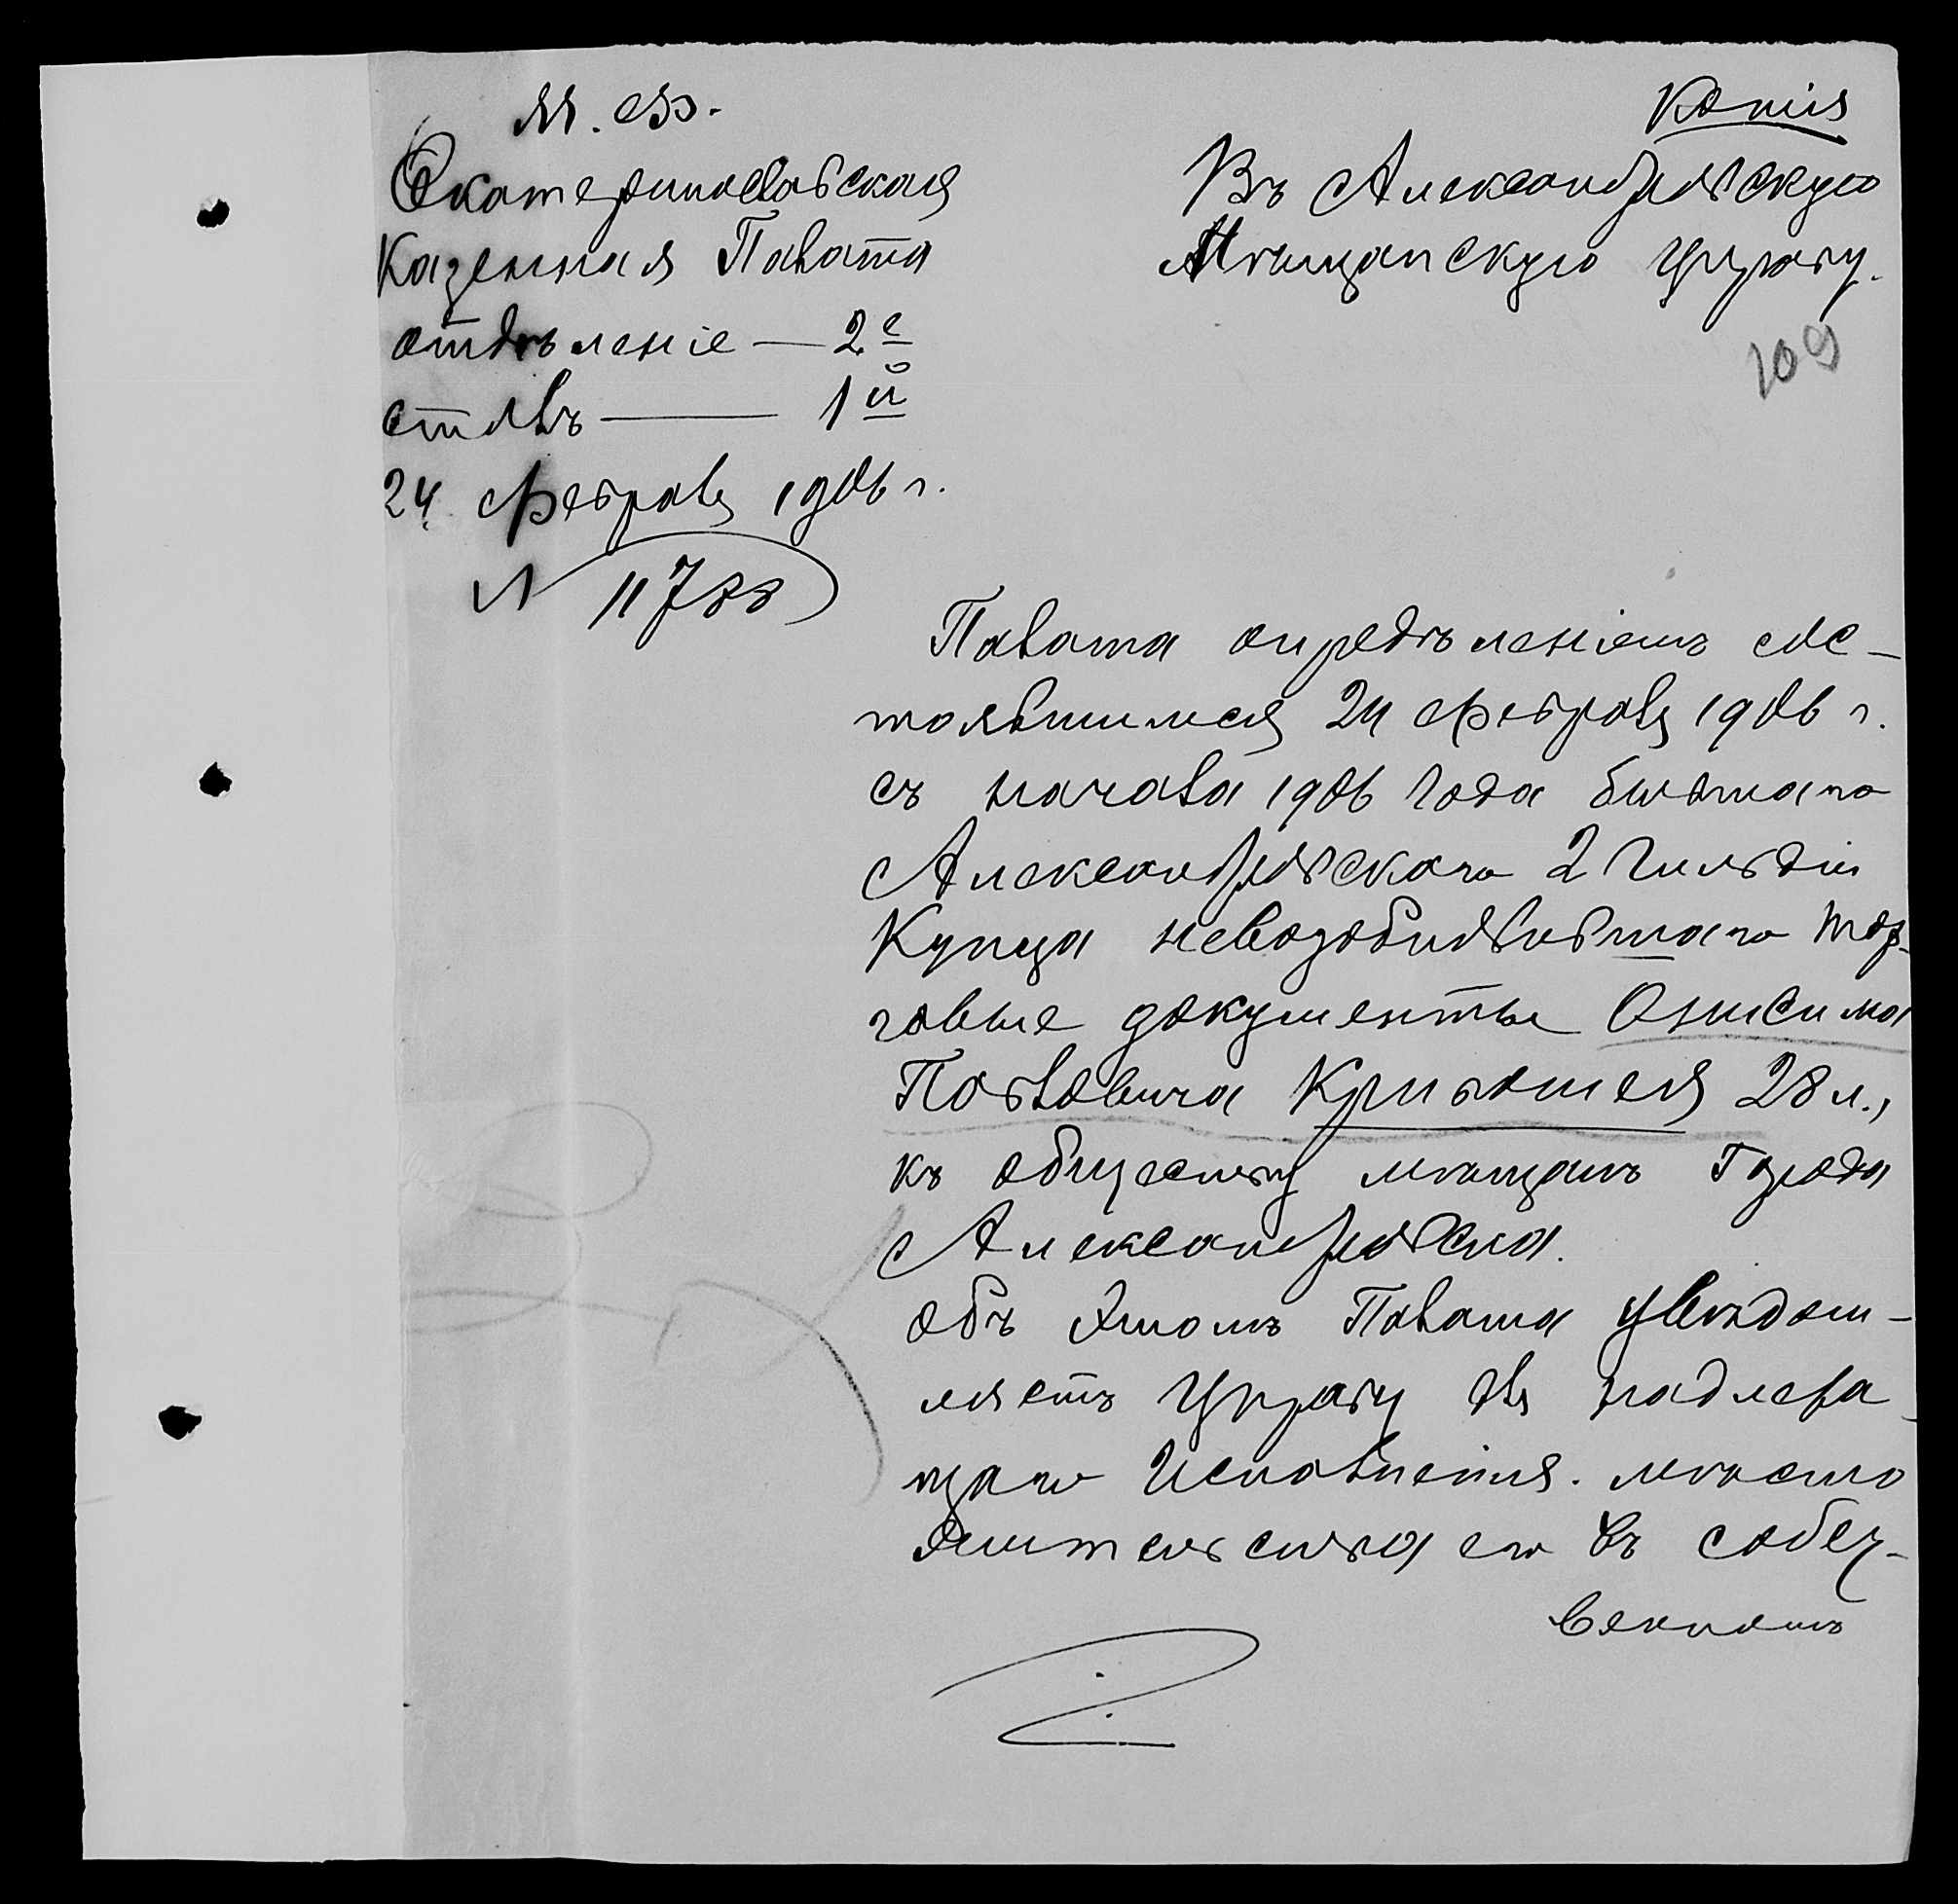 М. Ф.
Екатеринославская
Казенная Палата
отдѣленіе — 2е
столъ — 1й
24 Февраля 1906 г.
№ 11788
Копія
Въ Александровскую
Мѣщанскую Управу.
109
Палата опредѣленіемъ сос-
тоявшимся 24 Февраля 1906 г.
съ начала 1906 года бывшаго
Александровскаго 2 Гильдіи
Купца невозобновившаго тор-
говые документы Онисима
Павловича Кривошея 28 л.,
къ обществу мѣщанъ Города
Александровска.
Объ этомъ Палата увѣдом-
ляетъ Управу для надлежа-
щаго Исполненія. Мѣсто
жительства его въ